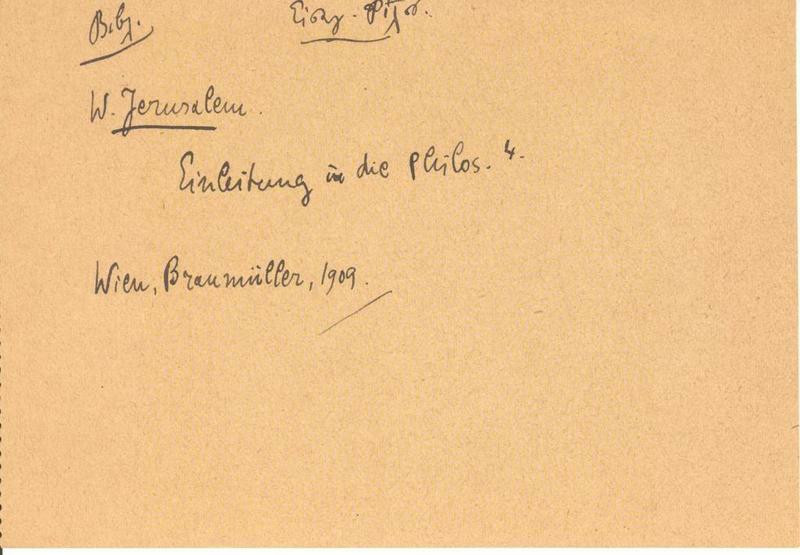 W. Jerusalem.
Einleitung in die Philos. 4.
Wien, Braumüller, 1909.